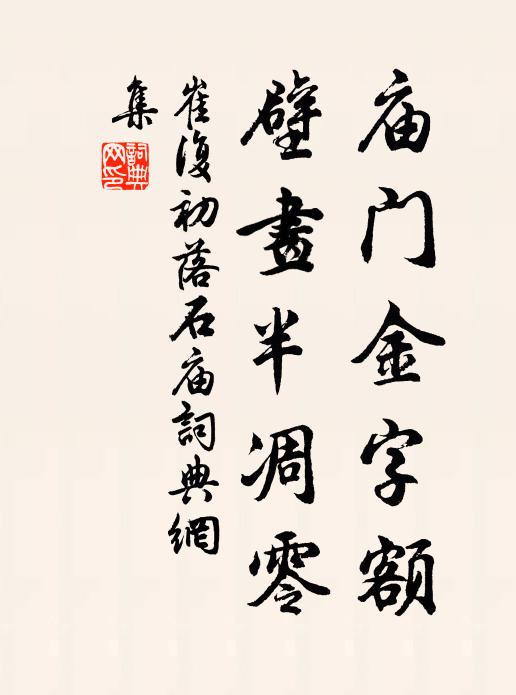 庙门金字额
壁畫半凋零
崔復初落石庙詞典網
集
詞典
网印